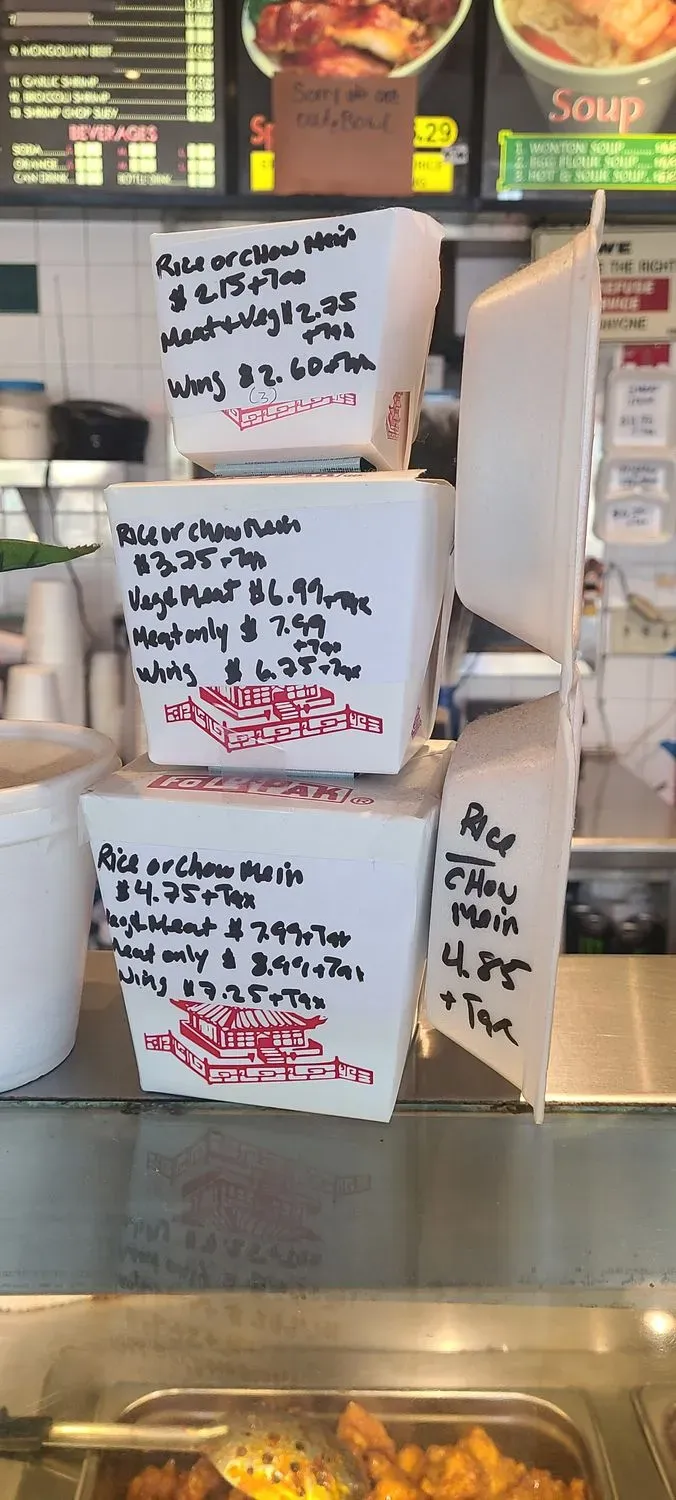 9. MONGOLIAN BEEF
11. GARLIC SHRIMP
12. BROCCOLI SHRIMP
13. SHRIMP CHOP SUEY
BEVERAGES
SODA
ORANGE
CAN DRINK
BOTTLE DRINK
Sorry we are
out, Bowl
.29
Soup
1. WONTON SOUP
2. EGG FLOUR SOUP
3. HOT & SOUR SOUP
WE
THE RIGHT
REFUSE
ANYONE
Rice or Chow Mein
$ 2.15 + Tax
Meat + Veg
2.75
+ Tax
Wing $2.60 + Tax
(3)
Rice or Chow Mein
$3.25 + Tax
Vege Meat $6.99 + Tax
Meat only $ 7.99
+ Tax
Wing $ 6.75 + Tax
FOLD-PAK®
Rice or Chow Mein
$4.75 + Tax
Vege Meat $ 7.99 + Tax
Meat only $ 8.99 + Tax
Wing $7.25 + Tax
Rice
CHOW
Mein
4.85
+ Tax